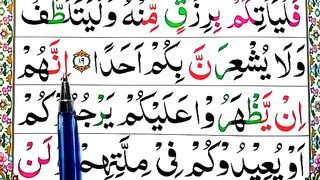 فَلْيَاْتِكُمْ بِرِزْقٍ مِّنْهُ وَلْيَتَلَطَّفْ
وَلَا يُشْعِرَنَّ بِكُمْ اَحَدًا ۝۱۹ اِنَّهُمْ
اِنْ يَّظْهَرُوْا عَلَيْكُمْ يَرْجُمُوْكُمْ
اَوْ يُعِيْدُوْكُمْ فِىْ مِلَّتِهِمْ وَلَنْ